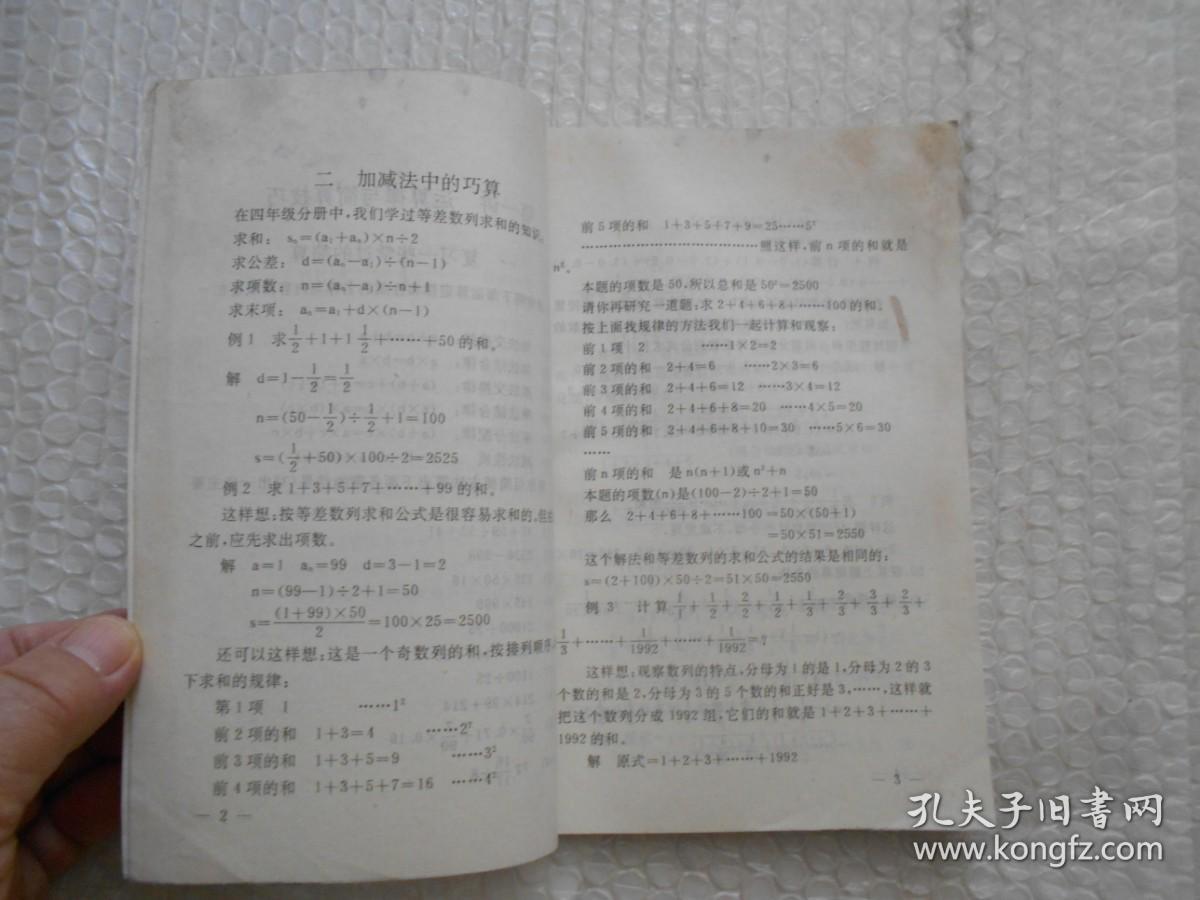 二 加减法中的巧算
在四年级分册中,我们学过等差数列求和的知识。
求和: sₙ=(a₁+aₙ)×n÷2
求公差: d=(aₙ-a₁)÷(n-1)
求项数: n=(aₙ-a₁)÷n+1
求末项: aₙ=a₁+d×(n-1)
例1 求1/2+1+1 1/2+……+50的和。
解 d=1-1/2=1/2
n=(50-1/2)÷1/2+1=100
s=(1/2+50)×100÷2=2525
例2 求1+3+5+7+……+99的和。
这样想:按等差数列求和公式是很容易求和的。但在
之前,应先求出项数。
解 a=1 aₙ=99 d=3-1=2
n=(99-1)÷2+1=50
s=(1+99)×50/2=100×25=2500
还可以这样想:这是一个奇数列的和,按排列顺序
下求和的规律:
第1项 1 ……1²
前2项的和 1+3=4 ……2²
前3项的和 1+3+5=9 ……3²
前4项的和 1+3+5+7=16 ……4²
— 2 —
前5项的和 1+3+5+7+9=25……5²
………………………………照这样,前n项的和就是
n²。
本题的项数是50,所以总和是50²=2500
请你再研究一道题:求2+4+6+8+……100的和。
按上面找规律的方法我们一起计算和观察:
前1项 2 ……1×2=2
前2项的和 2+4=6 ……2×3=6
前3项的和 2+4+6=12 ……3×4=12
前4项的和 2+4+6+8=20 ……4×5=20
前5项的和 2+4+6+8+10=30 ……5×6=30
……
前n项的和 是n(n+1)或n²+n
本题的项数(n)是(100-2)÷2+1=50
那么 2+4+6+8+……100=50×(50+1)
=50×51=2550
这个解法和等差数列的求和公式的结果是相同的:
s=(2+100)×50÷2=51×50=2550
例3 计算1/1+1/2+2/2+1/2+1/3+2/3+3/3+2/3+
1/3+……+1/1992+……+1/1992=?
这样想:观察数列的特点,分母为1的是1,分母为2的3
个数的和是2,分母为3的5个数的和正好是3,……,这样就
把这个数列分成1992组,它们的和就是1+2+3+……+
1992的和。
解 原式=1+2+3+……+1992
— 3 —
孔夫子旧书网
www.kongfz.com